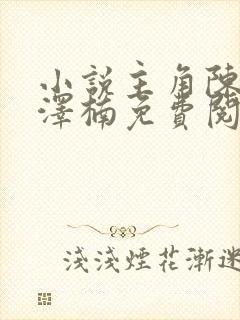 小說主角陳
澤楠免費閱
淺淺煙花漸迷